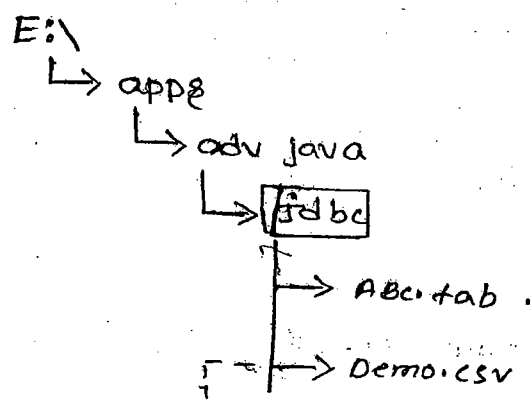 E:\
apps
adv java
jdbc
ABC.tab
Demo.csv